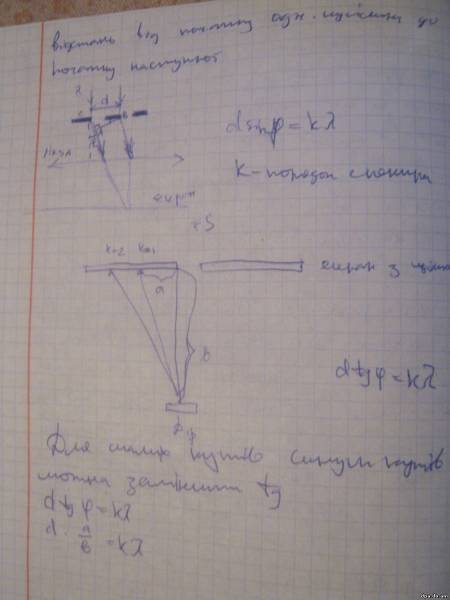 відстань від початку одн. щілини до
початку наступної
λ
d
d sin φ = kλ
лінза
k - порядок спектра
екран
k=2 k=1
екран з щілин
a
b
d tg φ = kλ
φ φ
Для малих кутів синуси кутів
можна замінити tg
d tg φ = kλ
d · a/b = kλ